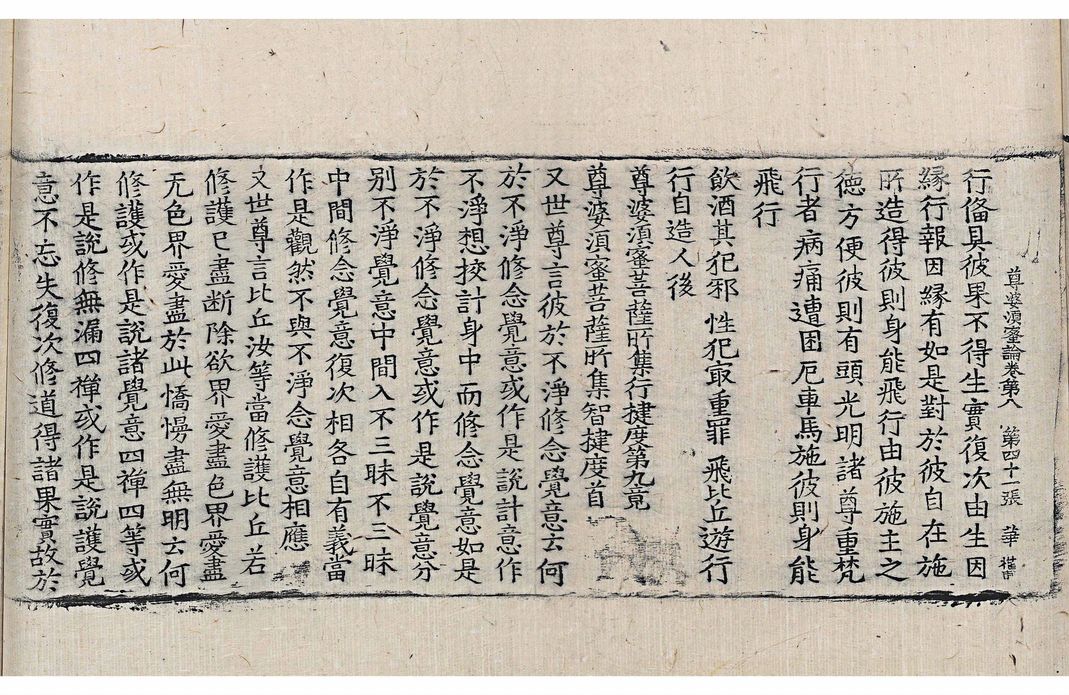 尊婆湏蜜論卷第八 第四十一張 華
行俻具彼果不得生實復次由生因
縁行報因縁有如是對於彼自在施
所造得彼則身能飛行由彼施主之
徳方便彼則有頭光明諸尊重梵
行者病痛遭困厄車馬施彼則身能
飛行
飲酒其犯邪 性犯寂重罪 飛比丘遊行
行自造人後
尊婆湏蜜菩薩所集行揵度第九竟
尊婆湏蜜菩薩所集智揵度首
又世尊言彼於不淨修念覺意云何
於不淨修念覺意或作是說計意作
不淨想挍計身中而修念覺意如是
於不淨修念覺意或作是說覺意分
別不淨覺意中間入不三昧不三昧
中間修念覺意復次相各自有義當
作是觀然不與不淨念覺意相應
又世尊言比丘汝等當修護比丘若
修護已盡断除欲界愛盡色界愛盡
无色界愛盡於此憍慢盡無明云何
修護或作是說諸覺意四禪四等或
作是說修無漏四禪或作是說護覺
意不忘失復次修道得諸果實故於